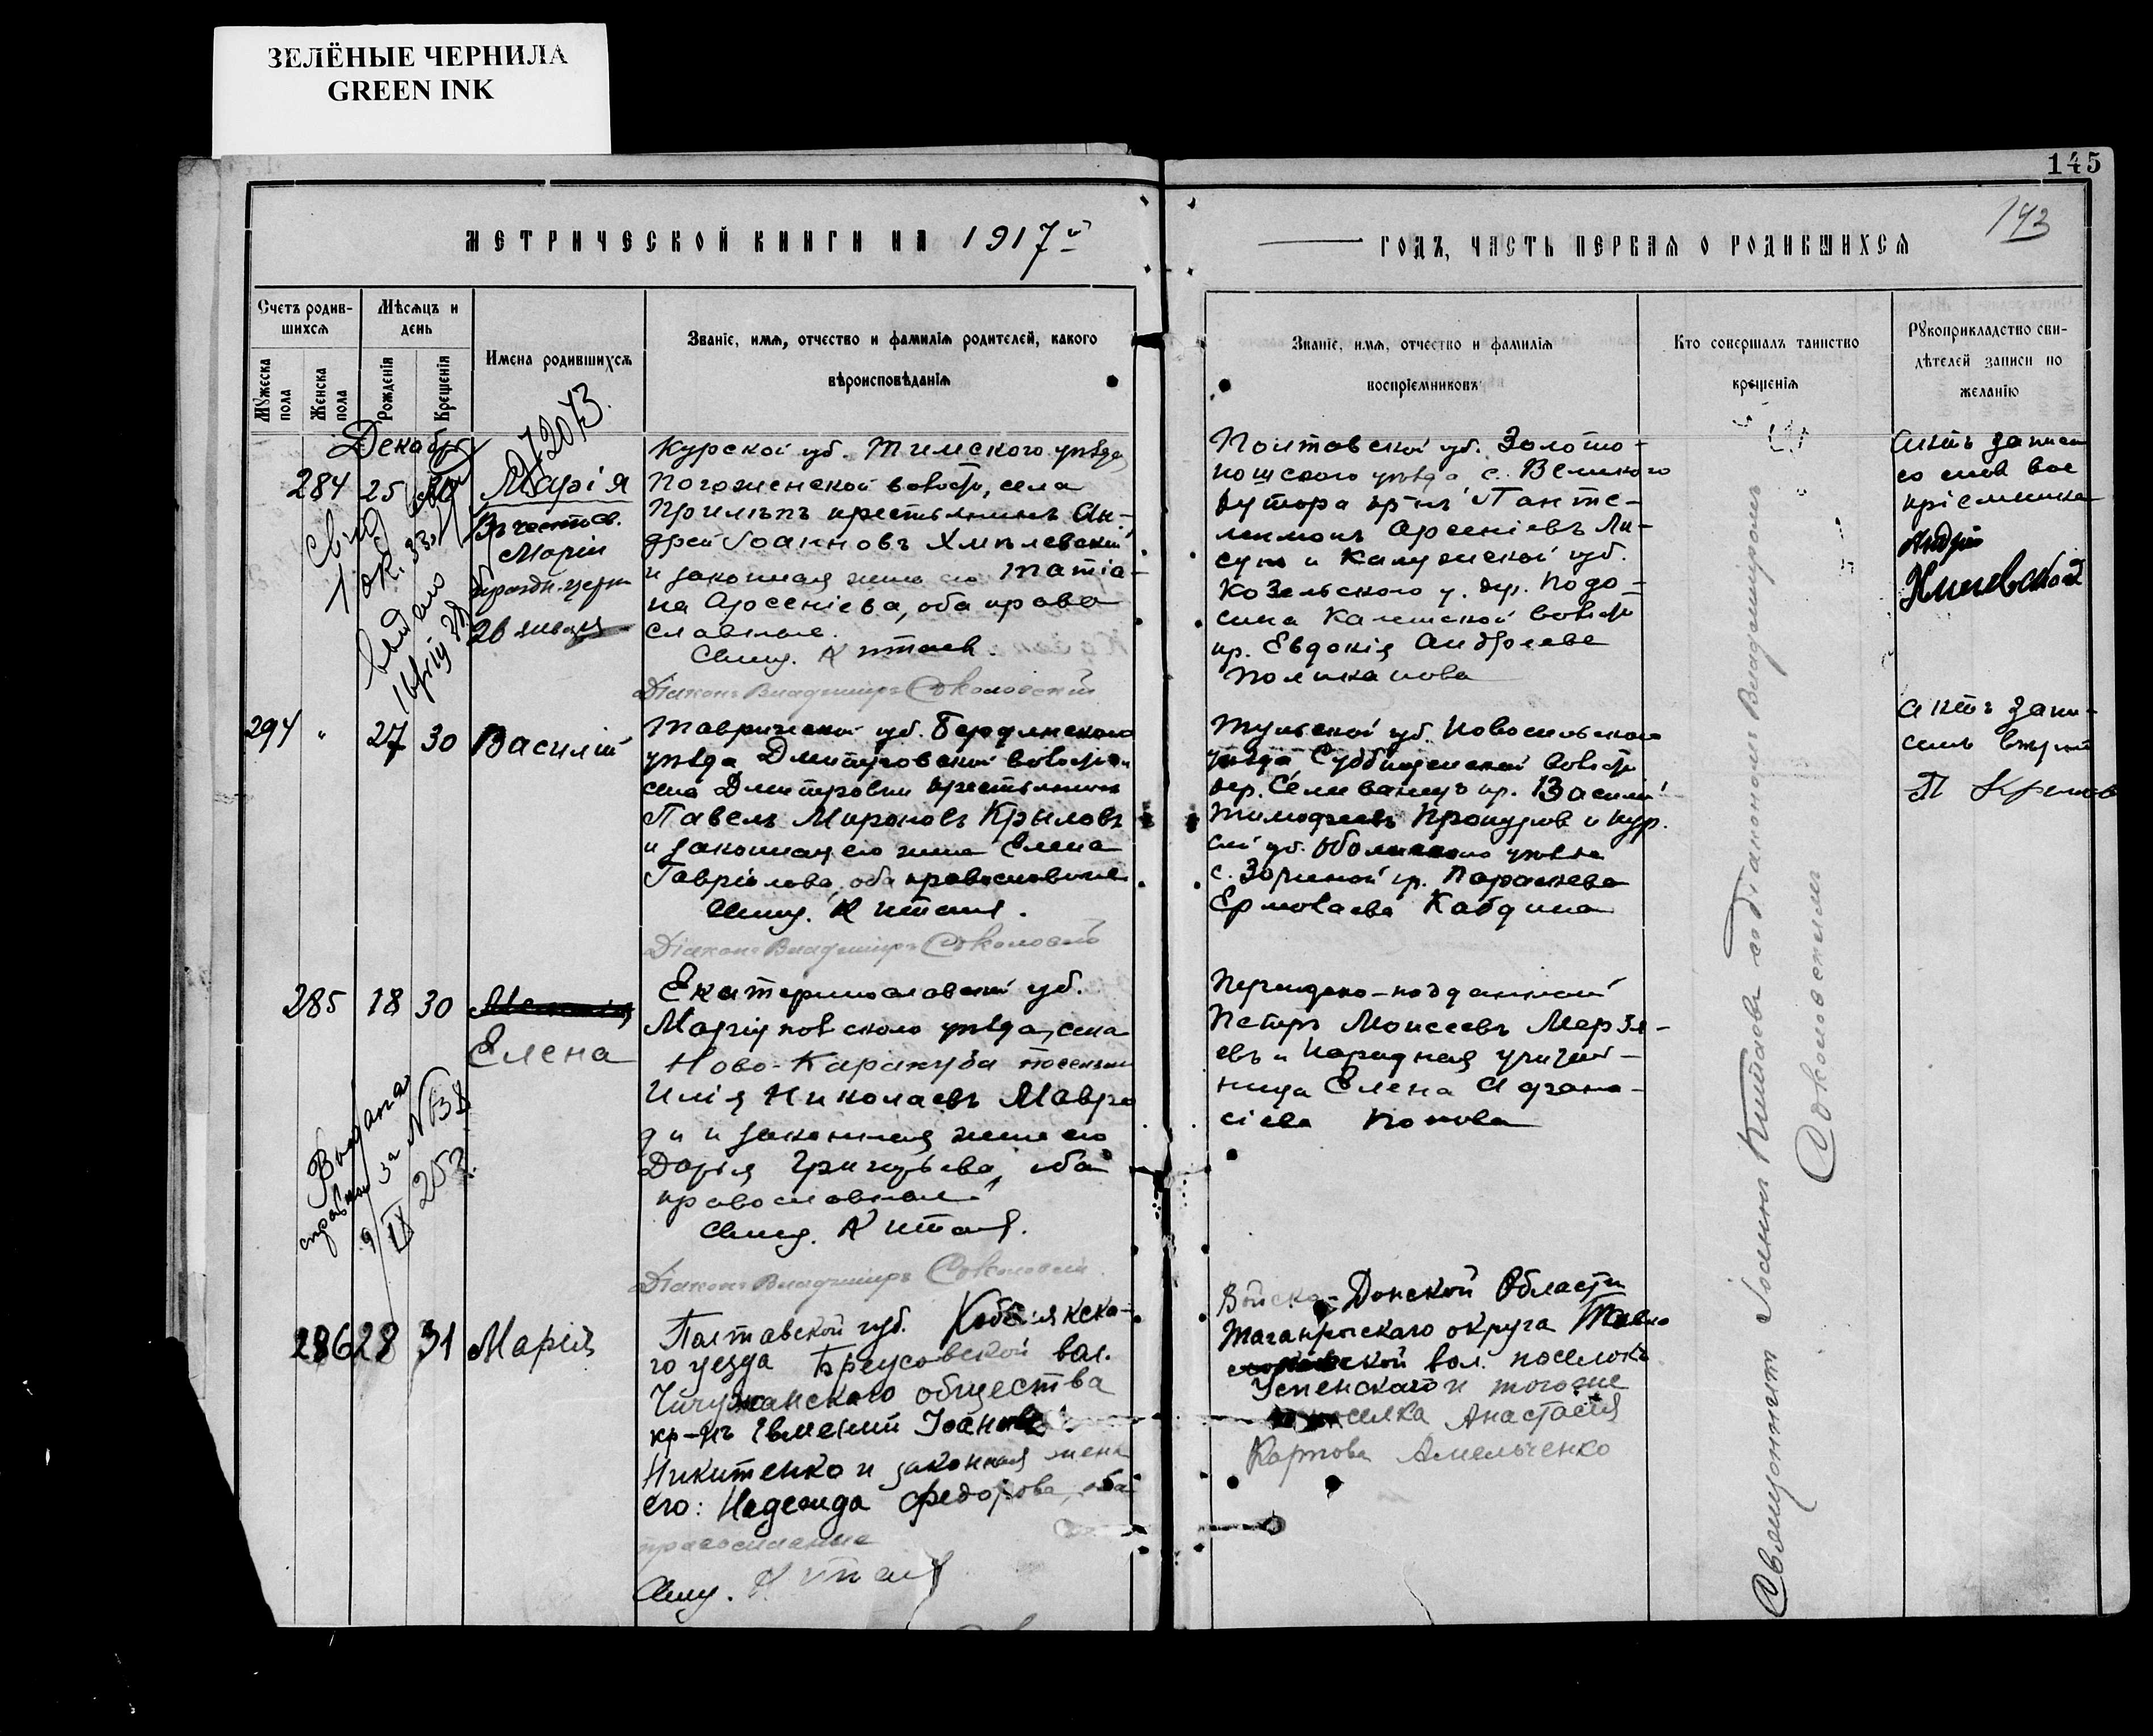 ЗЕЛЁНЫЕ ЧЕРНИЛА
GREEN INK
145
143
МЕТРИЧЕСКОЙ КНИГИ НА 1917й
ГОДЪ, ЧАСТЬ ПЕРВАЯ О РОДИВШИХСЯ
Счетъ родив-
шихся
Мужеска
пола
Женска
пола
Мѣсяцъ и
день
Рожденія
Крещенія
Имена родившихся
Званіе, имя, отчество и фамилія родителей, какого
вѣроисповѣданія
Званіе, имя, отчество и фамилія
воспріемниковъ
Кто совершалъ таинство
крещенія
Рукоприкладство сви-
дѣтелей записи по
желанію
Декабрь
284 25 Марія
Въ честь св.
Маріи
26 января
Курской губ. Тимского уѣзда
Погоженской волости, села
крестьянинъ Ан-
дрей Іоанновъ Хмѣлевской
и законная жена его Татіа-
на Арсеніева, оба право
славные.
Свящ. Китаев.
Діаконъ Владиміръ Соколовскій
Полтавской губ. Золото-
ношского уѣзда с. Великого
хутора кр-нъ Панте-
леимонъ Арсеніевъ Ли-
сун и Калужской губ.
Козельского у. дер. Подо-
волости
кр. Евдокія Андреева
Поликанова
Актъ записан
со слов вос
пріемника
Андрей
Хмелевской
294 " 27 30 Василій
Таврической губ. Бердянского
уѣзда Дмитровской волости
села Дмитровки крестьянинъ
Павелъ Мироновъ Крыловъ
и законная его жена Елена
Гавріилова, оба православные
Свящ. Китаев.
Діаконъ Владиміръ Соколовскій
Тульской губ. Новосильского
уѣзда Судбищенской волости
дер. кр. Василій
Тимофеевъ и Кур.
ской губ. уѣзда
с. Зориной кр. Параскева
Ермолаева
Актъ запи-
санъ
П Крылов
285 18 30
Елена
Выдана
справка за № 38
9/IX 253.
Екатеринославской губ.
Маріупольского уѣзда, села
Ново-Каракуба поселянин
Илія Николаевъ Мавро
ди и законная жена его
Дарія Григорьева, оба
православные
Свящ. Китаев.
Діаконъ Владиміръ Соколовскій.
Персидско-подданный
Петръ Моисеевъ Мерзя-
евъ и Народная учитель-
ница Елена Афана-
сіева Попова
286 28 31 Марія
Полтавской губ. Кобелякска-
го уезда Бреусовской вол.
общества
кр-нъ Евмений Іоаннов
Никитенко и законная жена
его: Надежда Федорова, оба
православные
Свящ. Китаев
Войска-Донской Области
Таганрогскаго округа
ской вол. поселокъ
Успенскаго и того же
поселка Анастасія
Карпова Амельченко
Священникъ Іоаннъ Китаевъ съ діакономъ Владиміромъ
Соколовскимъ